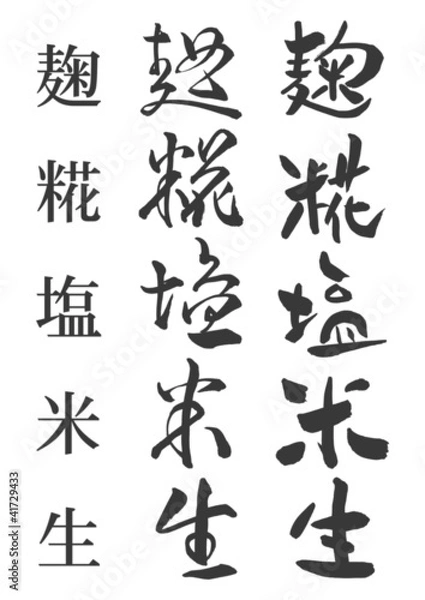 麹 麹 麹
糀 糀 糀
塩 塩 塩
米 米 米
生 生 生
Adobe Stock | #41729433